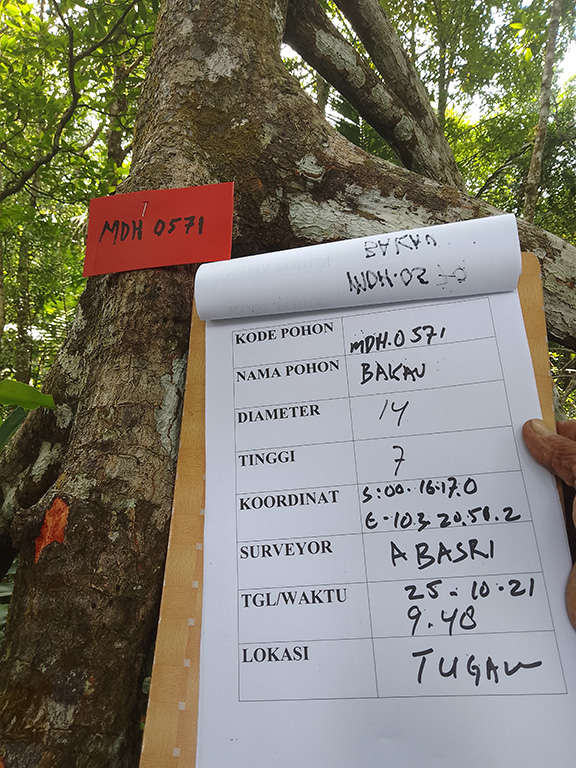 MDH 0571
BAKAU
KODE POHON MDH.0571
NAMA POHON BAKAU
DIAMETER 14
TINGGI 7
KOORDINAT S:00.16.17.0
E.103.20.51.2
SURVEYOR A BASRI
TGL/WAKTU 25.10.21
9.48
LOKASI TUGAU